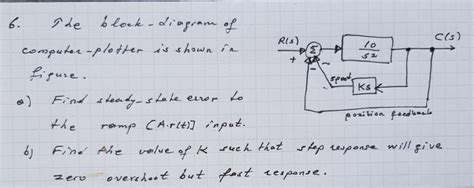 6. The block-diagram of
computer-plotter is shown in
figure.
a) Find steady-state error to
the ramp [A.r(t)] input.
b) Find the value of K such that step response will give
zero overshoot but fast response.
R(s)
+
Σ
-
-
10
s2
C(s)
speed
Ks
position feedback